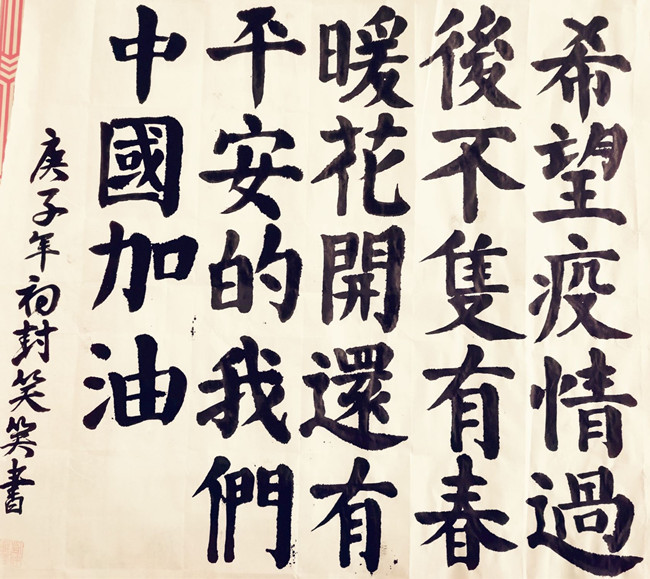 希望疫情過
後不隻有春
暖花開還有
平安的我們
中國加油
庚子年初封笑笑書